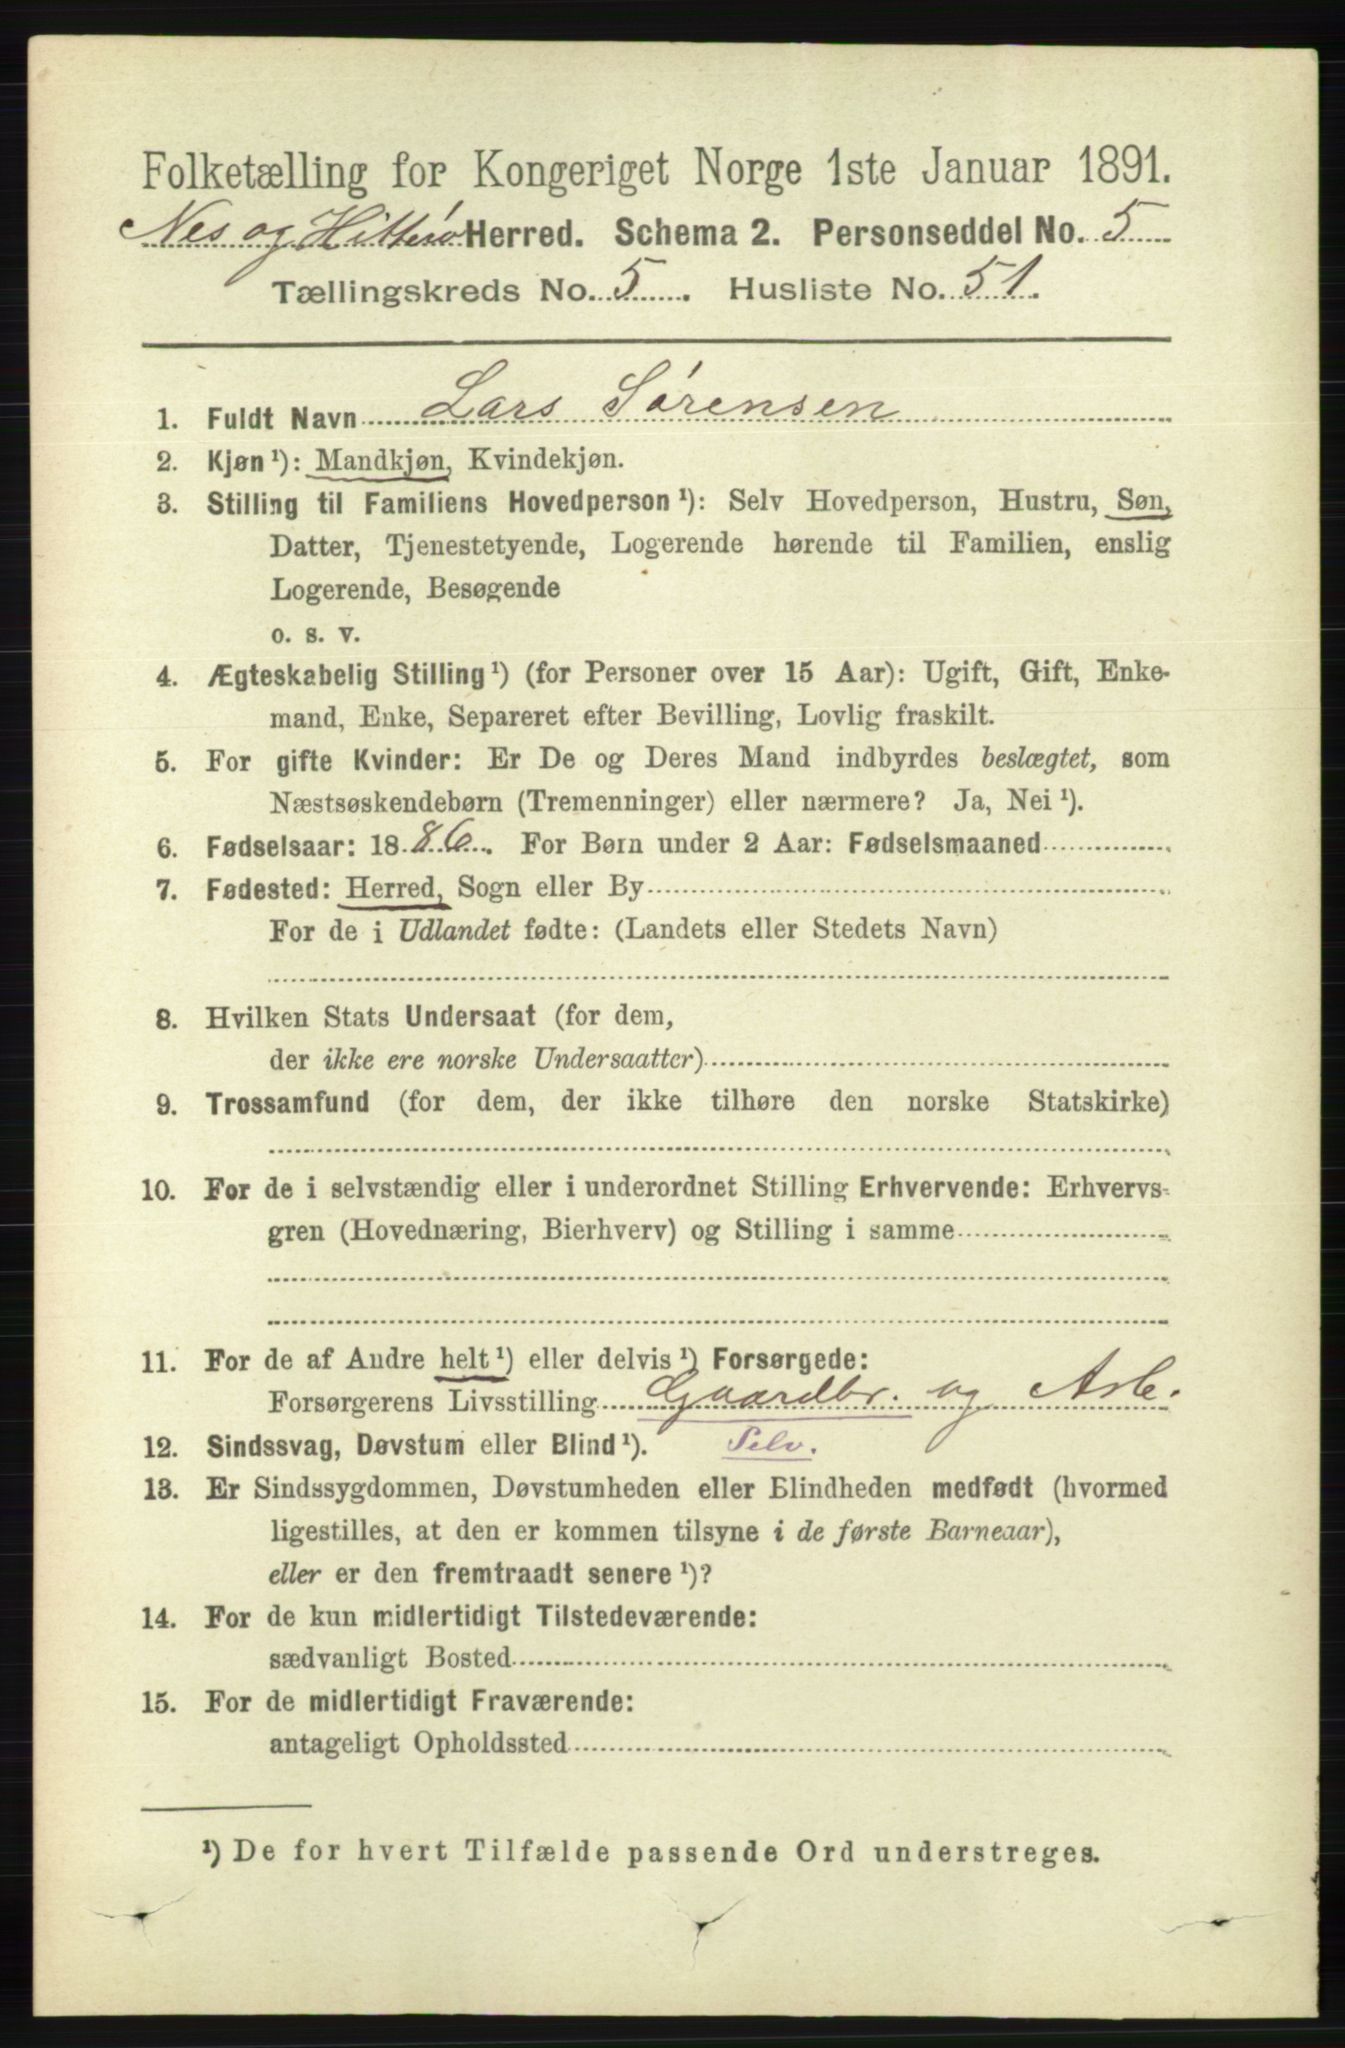 Folketælling for Kongeriget Norge 1ste Januar 1891.
Nes og Hitterø Herred. Schema 2. Personseddel No. 5
Tællingskreds No. 5. Husliste No. 51.
1. Fuldt Navn Lars Sørensen
2. Kjøn¹): Mandkjøn, Kvindekjøn.
3. Stilling til Familiens Hovedperson¹): Selv Hovedperson, Hustru, Søn,
Datter, Tjenestetyende, Logerende hørende til Familien, enslig
Logerende, Besøgende
o. s. v.
4. Ægteskabelig Stilling¹) (for Personer over 15 Aar): Ugift, Gift, Enke-
mand, Enke, Separeret efter Bevilling, Lovlig fraskilt.
5. For gifte Kvinder: Er De og Deres Mand indbyrdes beslægtet, som
Næstsøskendebørn (Tremenninger) eller nærmere? Ja, Nei¹).
6. Fødselsaar: 1886. For Børn under 2 Aar: Fødselsmaaned
7. Fødested: Herred, Sogn eller By
For de i Udlandet fødte: (Landets eller Stedets Navn)
8. Hvilken Stats Undersaat (for dem,
der ikke ere norske Undersaatter)
9. Trossamfund (for dem, der ikke tilhøre den norske Statskirke)
10. For de i selvstændig eller i underordnet Stilling Erhvervende: Erhvervs-
gren (Hovednæring, Bierhverv) og Stilling i samme
11. For de af Andre helt¹) eller delvis¹) Forsørgede:
Forsørgerens Livsstilling Gaardbr. og Arb.
12. Sindssvag, Døvstum eller Blind¹). Selv.
13. Er Sindssygdommen, Døvstumheden eller Blindheden medfødt (hvormed
ligestilles, at den er kommen tilsyne i de første Barneaar),
eller er den fremtraadt senere¹)?
14. For de kun midlertidigt Tilstedeværende:
sædvanligt Bosted
15. For de midlertidigt Fraværende:
antageligt Opholdssted
¹) De for hvert Tilfælde passende Ord understreges.